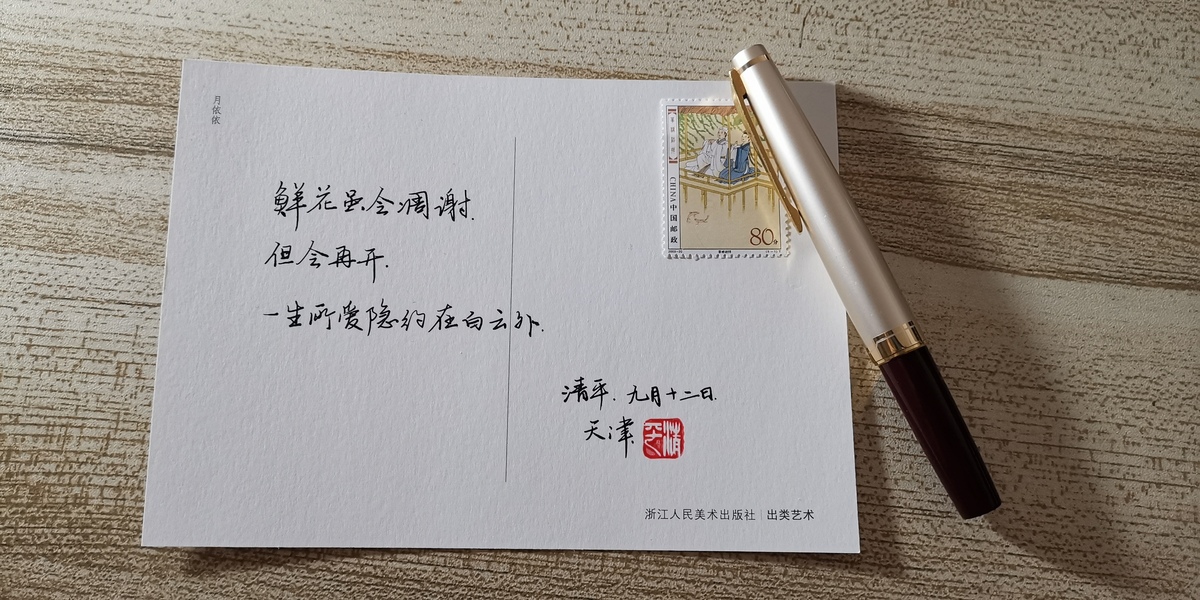 月依依
鲜花虽会凋谢.
但会再开.
一生所爱隐约在白云外.
CHINA 中国邮政
80分
清平. 九月十二日.
天津
清平
浙江人民美术出版社 | 出类艺术